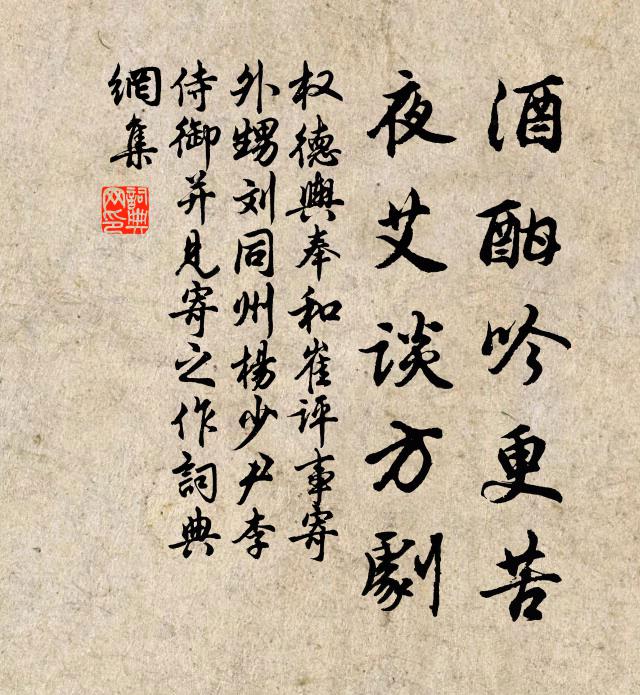 酒酣吟更苦
夜艾谈方劇
权德輿奉和崔评事寄
外甥刘同州楊少尹李
侍御并见寄之作詞典
網集
詞典
网印